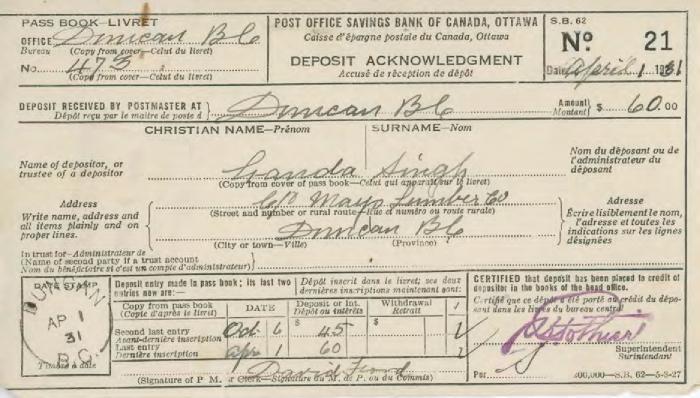 PASS BOOK—LIVRET
OFFICE Duncan BC
Bureau (Copy from cover—Celui du livret)
No. 473
(Copy from cover—Celui du livret)
POST OFFICE SAVINGS BANK OF CANADA, OTTAWA
Caisse d'épargne postale du Canada, Ottawa
DEPOSIT ACKNOWLEDGMENT
Accusé de réception de dépôt
S.B. 62
No. 21
Date April 1 1931
DEPOSIT RECEIVED BY POSTMASTER AT Duncan BC
Dépôt reçu par le maître de poste d
Amount Montant $ 60.00
CHRISTIAN NAME—Prénom SURNAME—Nom
Name of depositor, or trustee of a depositor
Ganda Singh
(Copy from cover of pass book—Celui qui apparaît sur le livret)
Nom du déposant ou de l'administrateur du déposant
Address
Write name, address and all items plainly and on proper lines.
C/o Mayo Lumber Co
(Street and number or rural route—rue et numéro ou route rurale)
Duncan BC
(City or town—Ville) (Province)
Adresse
Écrire lisiblement le nom, l'adresse et toutes les indications sur les lignes désignées
In trust for—Administrateur de
(Name of second party if a trust account
Nom du bénéficiaire si c'est un compte d'administrateur)
DATE STAMP
DUNCAN
AP 1
31
B.C.
Timbre à date
Deposit entry made in pass book; its last two entries now are:
Dépôt inscrit dans le livret; ses deux dernières inscriptions maintenant sont:
Copy from pass book (Copie d'après le livret)
DATE
Deposit or Int. Dépôt ou intérêts
Withdrawal Retrait
Second last entry Avant-dernière inscription Oct 6 $ 45 $
Last entry Dernière inscription Apr 1 60
David Ford
(Signature of P. M. or Clerk—Signature du M. de P. ou du Commis)
CERTIFIED that deposit has been placed to credit of depositor in the books of the head office.
Certifié que ce dépôt a été porté au crédit du déposant dans les livres du bureau central
Superintendent
Surintendant
Per
400,000—S.B. 62—5-3-27